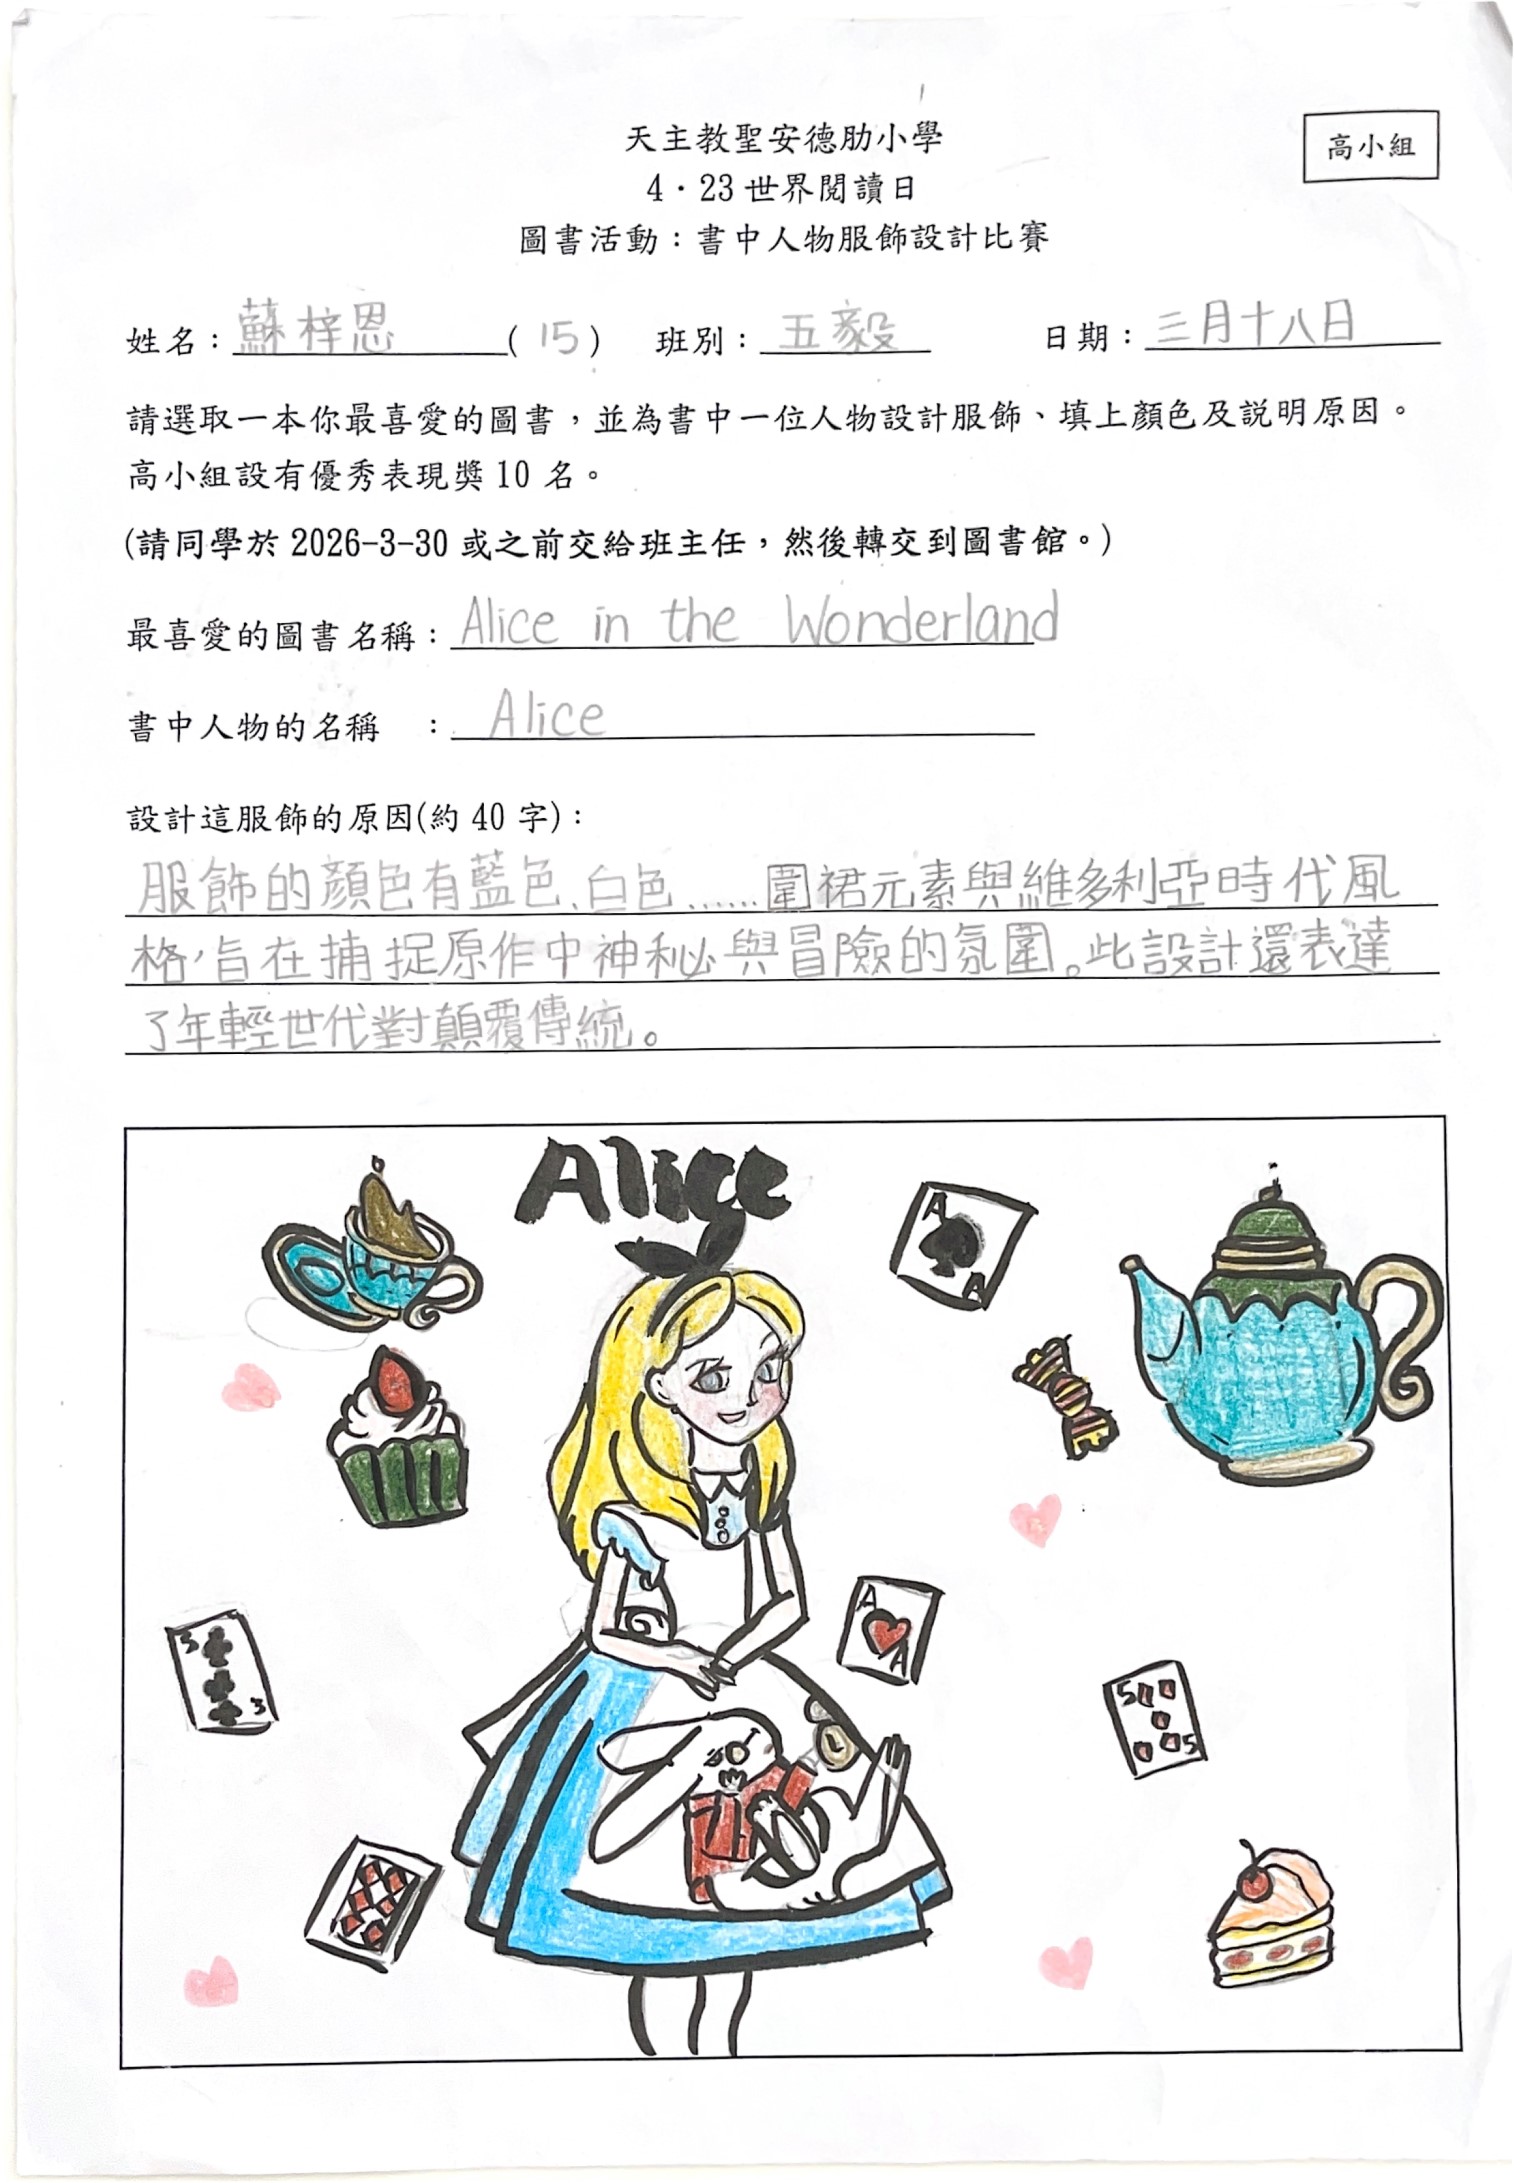 天主教聖安德肋小學
高小組
4·23世界閱讀日
圖書活動：書中人物服飾設計比賽
姓名：蘇梓恩(15) 班別：五毅 日期：三月十八日
請選取一本你最喜愛的圖書，並為書中一位人物設計服飾、填上顏色及説明原因。
高小組設有優秀表現獎10名。
(請同學於2026-3-30或之前交給班主任，然後轉交到圖書館。)
最喜愛的圖書名稱：Alice in the Wonderland
書中人物的名稱　：Alice
設計這服飾的原因(約40字)：
服飾的顏色有藍色、白色……圍裙元素與維多利亞時代風
格，旨在捕捉原作中神秘與冒險的氛圍。此設計還表達
了年輕世代對顛覆傳統。
Alice
A
A
A
A
3
3
5
5